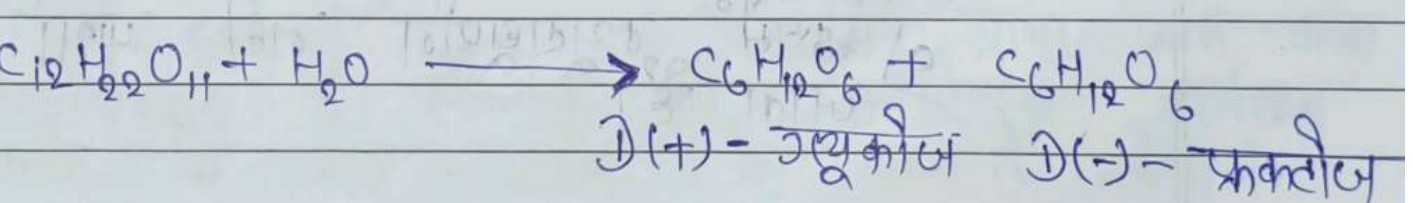 C₁₂H₂₂O₁₁ + H₂O ⟶ C₆H₁₂O₆ + C₆H₁₂O₆
D(+) - ग्लूकोज D(-) - फ्रक्टोज